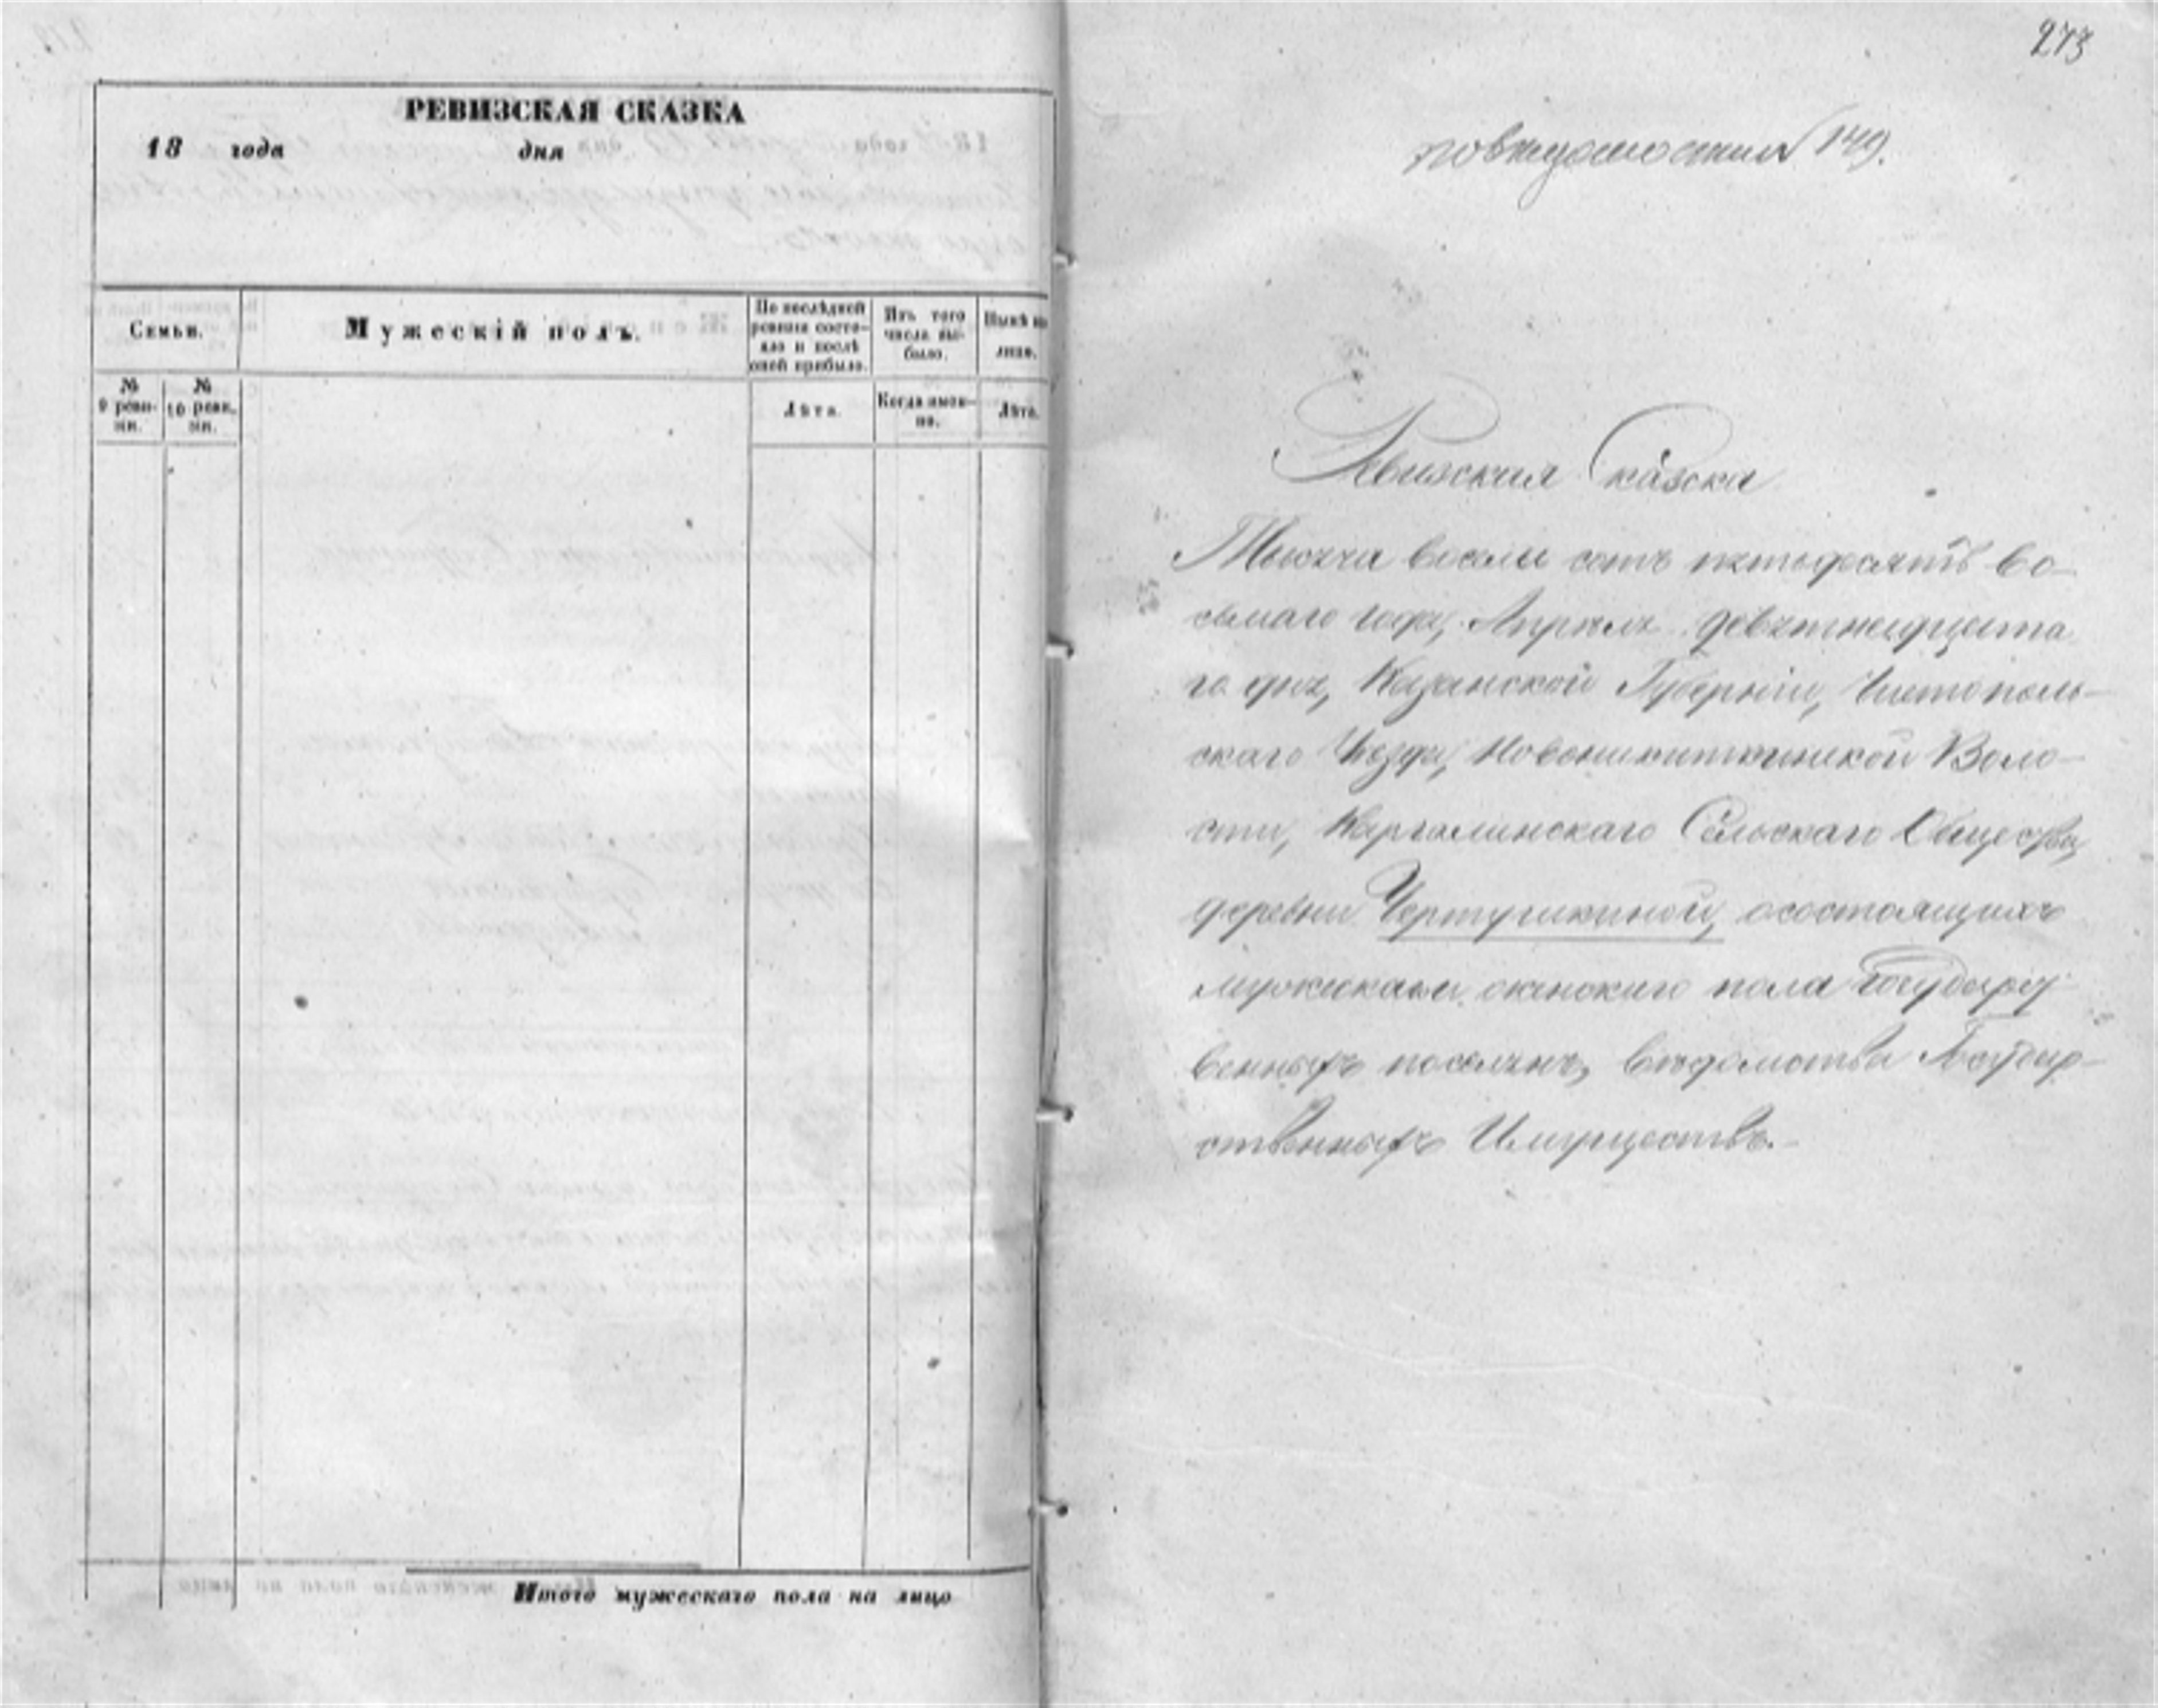 РЕВИЗСКАЯ СКАЗКА
18 года дня
Семьи.
Мужескій полъ.
По послѣдней ревизіи состояло и послѣ оной прибыло.
Изъ того числа выбыло.
Нынѣ на лицо.
№ 9 ревизіи.
№ 10 ревизіи.
Лѣта.
Когда именно.
Лѣта.
Итого мужескаго пола на лицо
273
149.
Ревизская Сказка
Тысяча восемь сотъ пятьдесятъ во-
сьмаго года, Апрѣля девятнадцата
го дня, Казанской Губерніи, Чистополь-
скаго Уѣзда, Новоникиткинской Воло-
сти, Каргалинскаго Сельскаго Общества,
деревни Чертушкиной, осостоящихъ
мужскаго женскаго пола Государ
венныхъ поселянъ, вѣдомства Государ-
ственныхъ Имуществъ.-